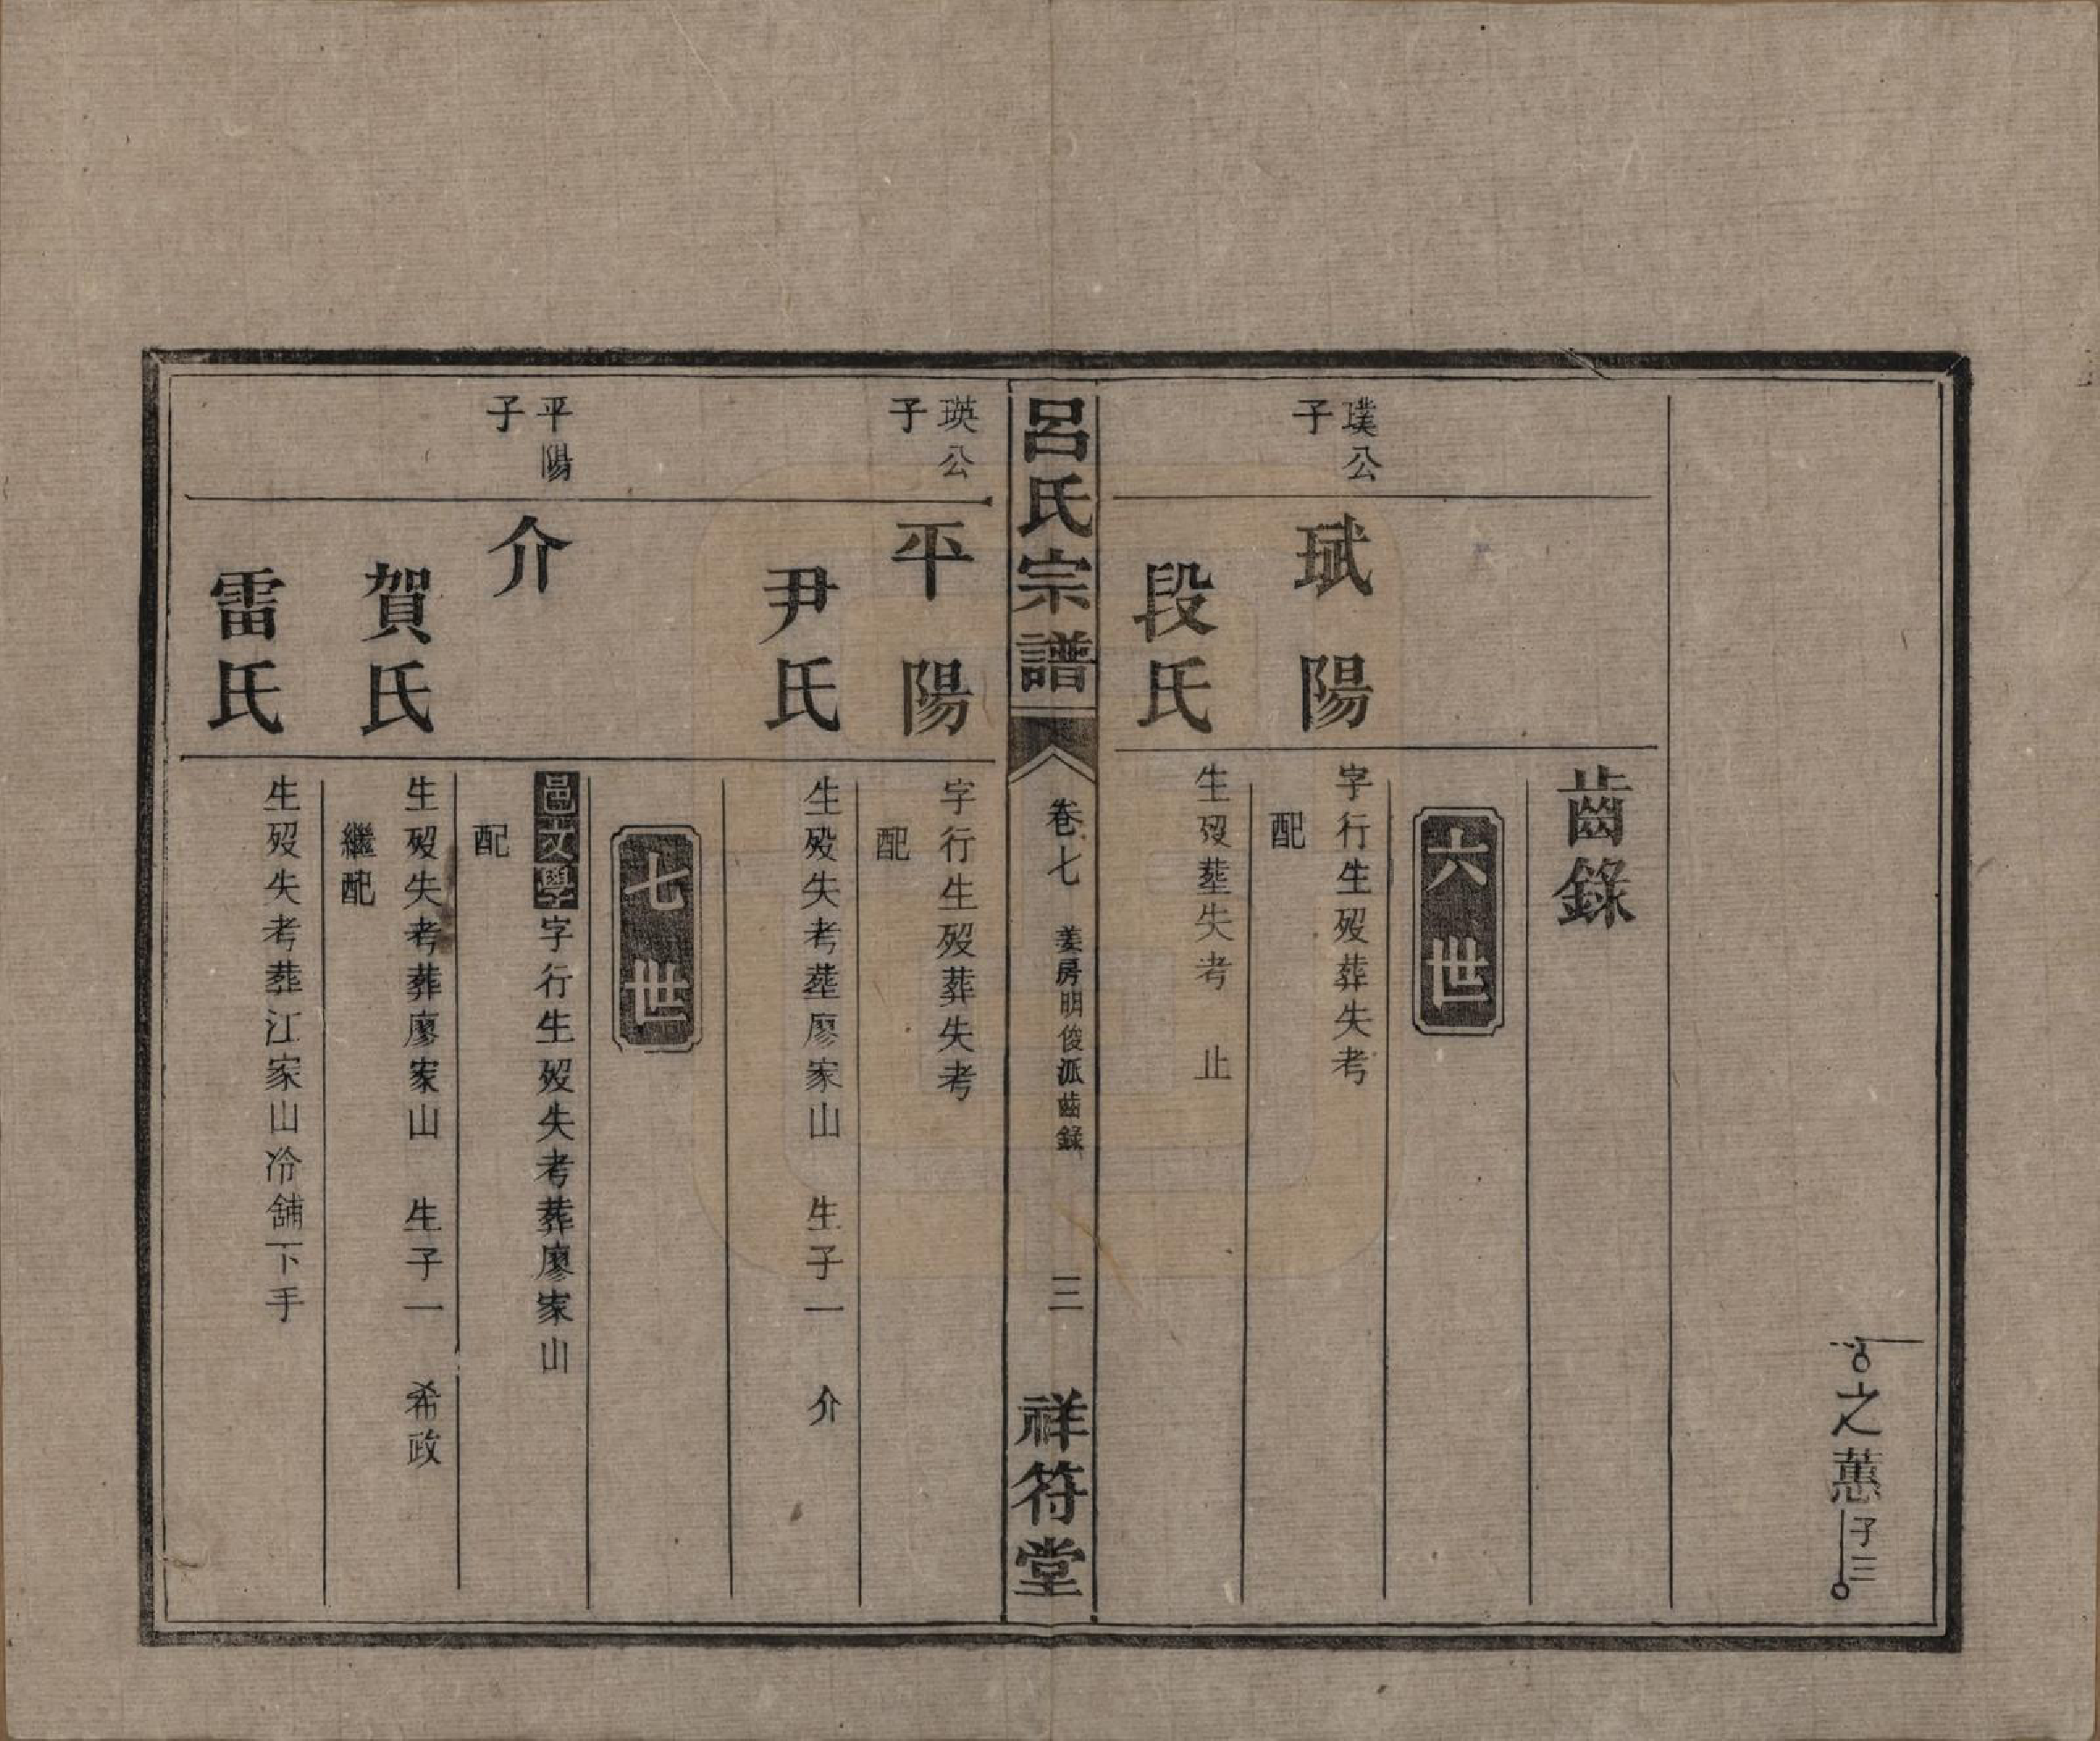 之蕙 子三
齒錄
六世
璞公
子
珷陽
字行生歿葬失考
配
段氏
生歿葬失考 止
呂氏宗譜
卷七 姜房明俊派齒錄 三
祥符堂
瑛公
子
平陽
字行生歿葬失考
配
尹氏
生歿失考葬廖家山 生子一 介
七世
平陽
子
介
邑文學字行生歿失考葬廖家山
配
賀氏
生歿失考葬廖家山 生子一 希政
繼配
雷氏
生歿失考葬江家山冷舖下手